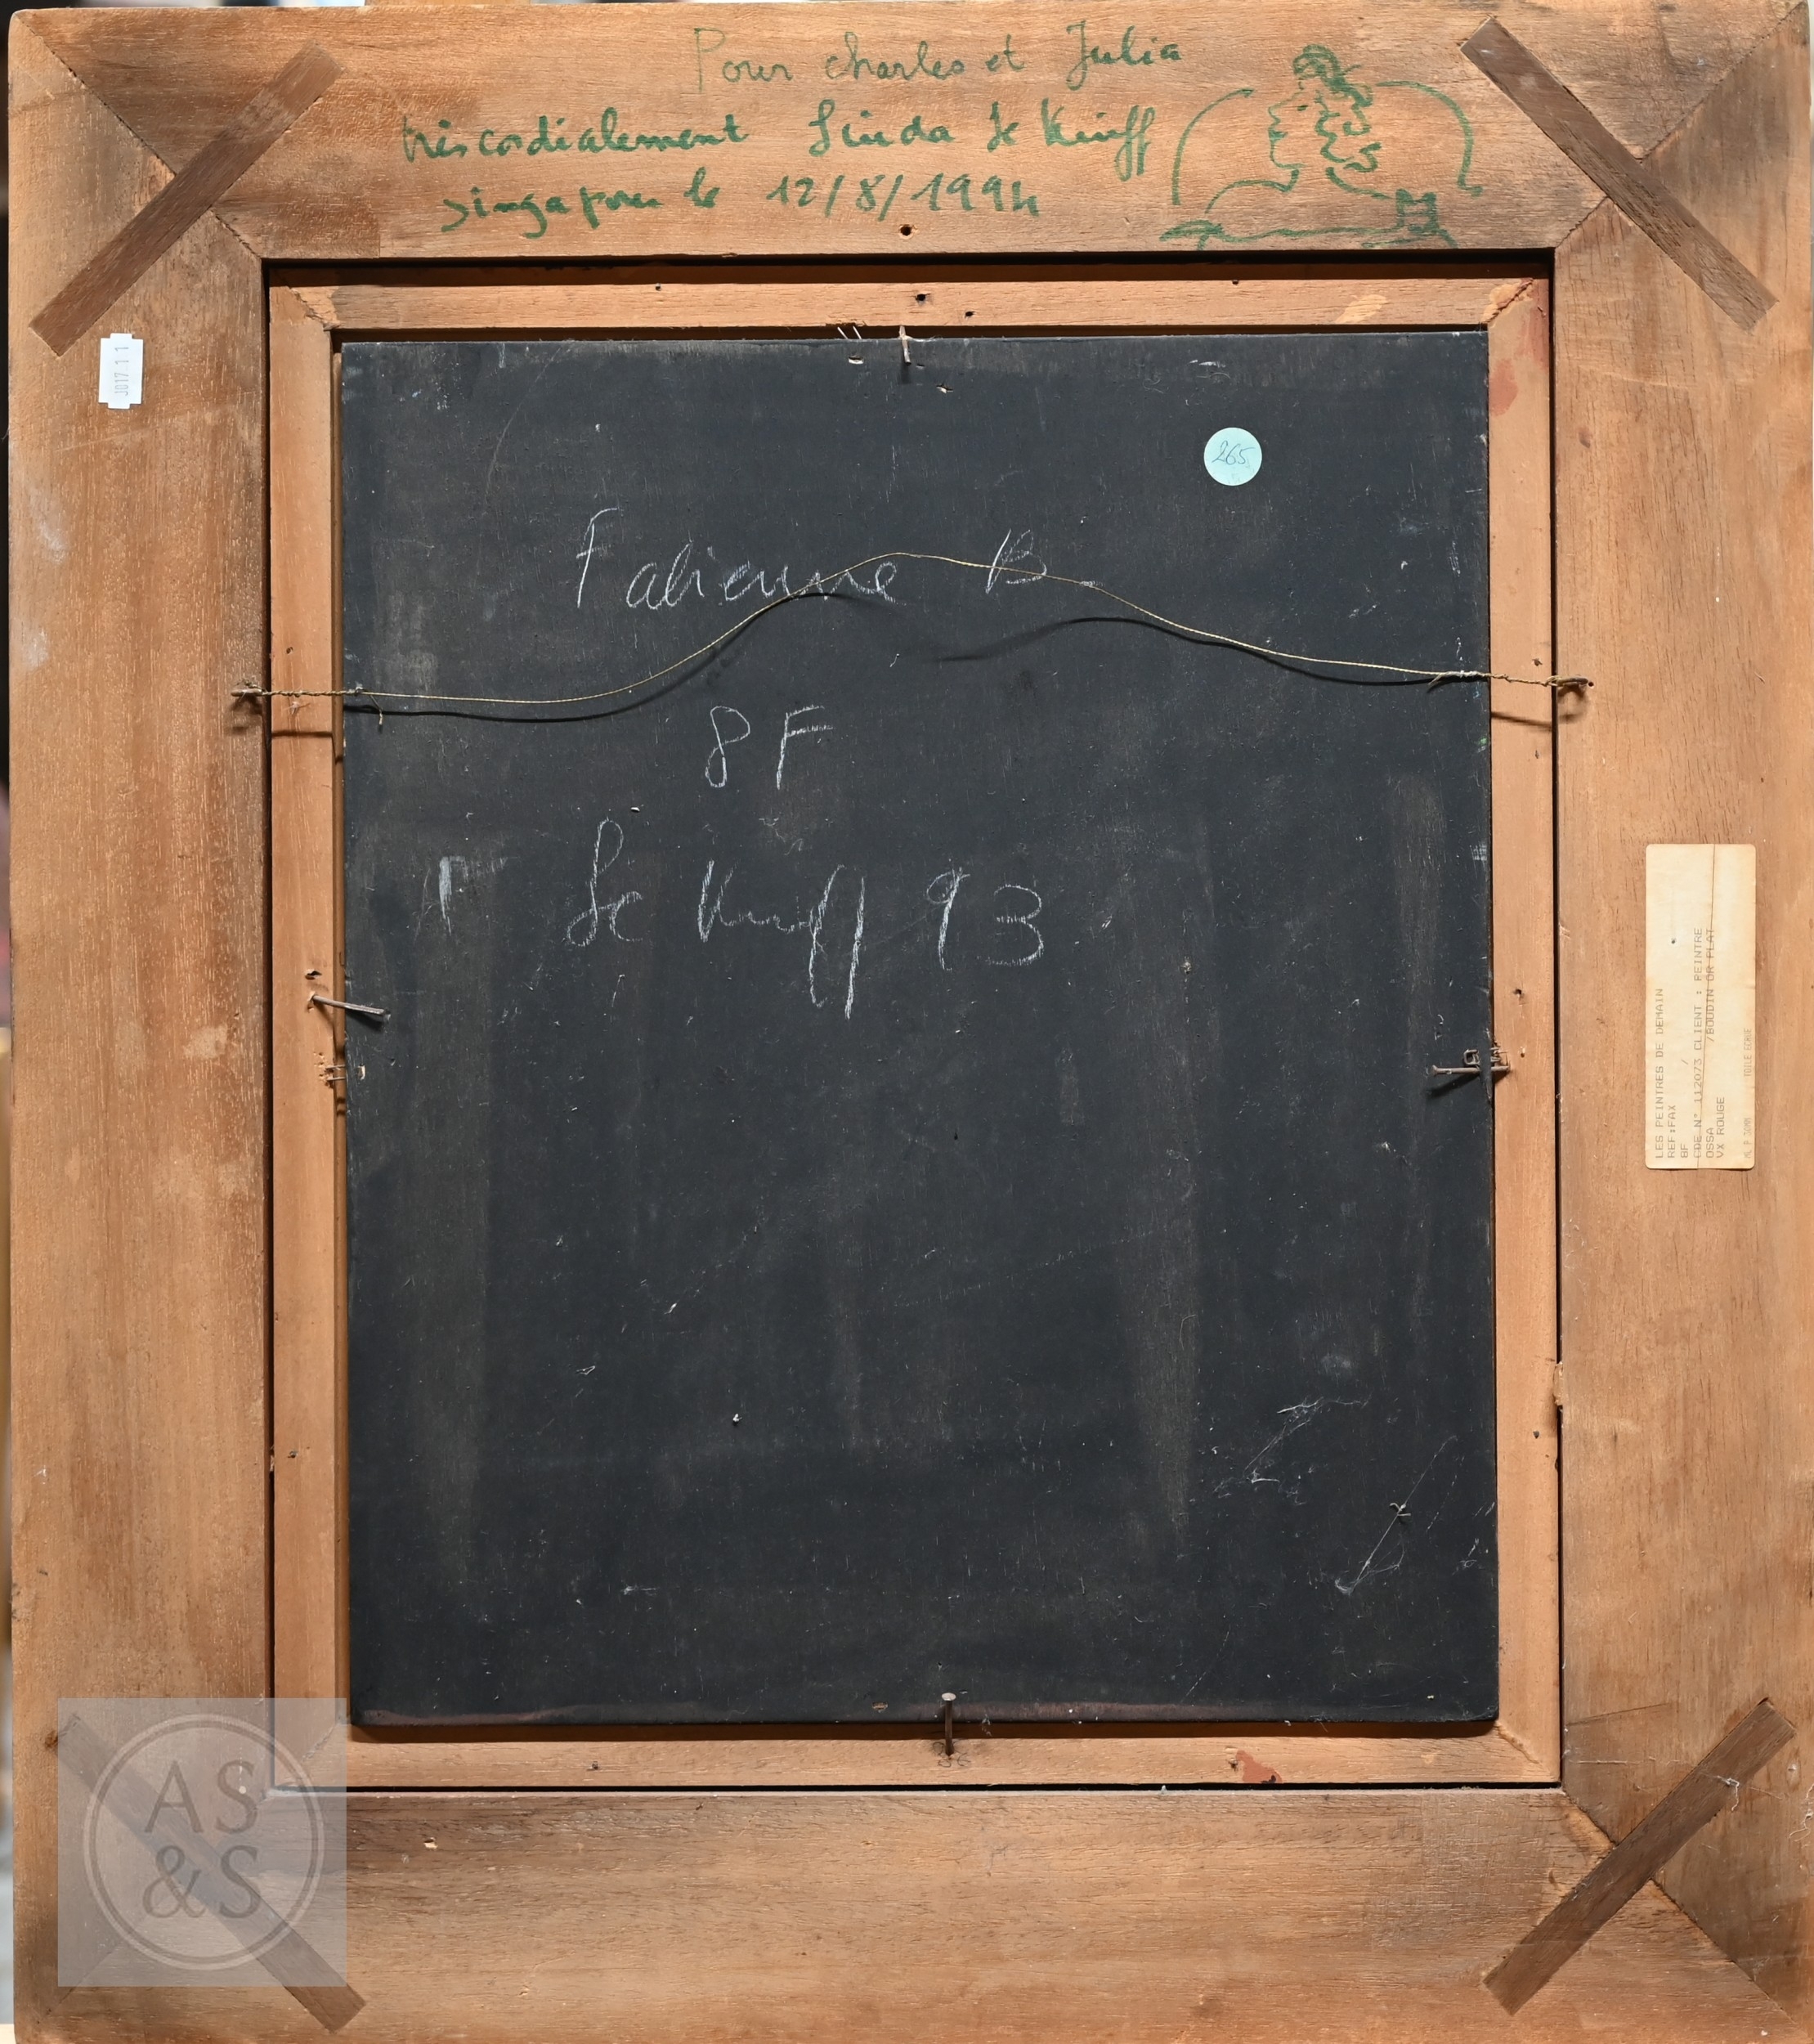 Pour Charles et Julia
très cordialement Linda Le Kinff
Singapour le 12/8/1994
J017.11
265
Fabienne B
8F
Le Kinff 93
LES PEINTRES DE DEMAIN
REF:FAX
8F /
CDE N° 112073 CLIENT : PEINTRE
OSSA /BOUDIN OR PLAT
VX ROUGE
TOILE ECRUE
AS
&S